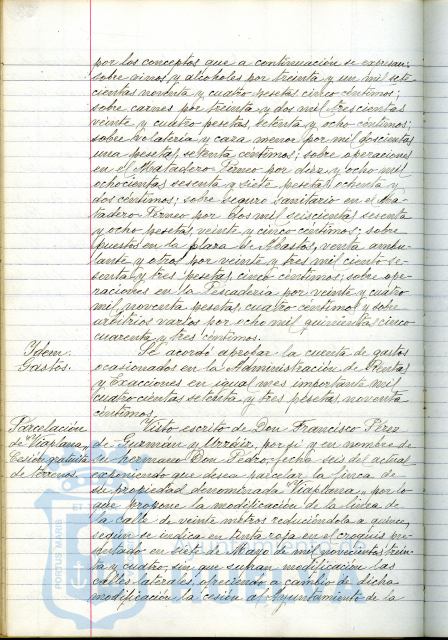 por los conceptos que a continuación se expresan:
sobre vinos y alcoholes por treinta y un mil sete-
cientas noventa y cuatro pesetas cinco céntimos;
sobre carnes por treinta y dos mil trescientas
veinte y cuatro pesetas, setenta y ocho céntimos;
sobre volatería y caza menor por mil doscientas
una pesetas, setenta céntimos; sobre operaciones
en el Matadero Térreo por diez y ocho mil
ochocientas sesenta y siete pesetas ochenta y
dos céntimos; sobre seguro sanitario en el Ma-
tadero Térreo por dos mil seiscientas sesenta
y ocho pesetas, veinte y cinco céntimos; sobre
puestos en la plaza de Abastos, venta ambu-
lante y otros por veinte y tres mil ciento se-
senta y tres pesetas, cinco céntimos; sobre ope-
raciones en la Pescadería por veinte y cuatro
mil noventa pesetas, cuatro céntimos y sobre
arbitrios varios por ocho mil quinientas cinco
cuarenta y tres céntimos.
Ydem.
Gastos.
Se acordó aprobar la cuenta de gastos
ocasionados en la Administración de Rentas
y Exacciones en igual mes importante mil
cuatrocientas setenta y tres pesetas noventa
céntimos.
Parcelación
de Viaplana,
Cesión gratuita
de terrenos.
Visto escrito de Don Francisco Pérez
de Guzmán y Urzáiz, por sí y en nombre de
su hermano Don Pedro, fecha seis del actual
exponiendo que desea parcelar la finca de
su propiedad denominada Viaplana, y por lo
que propone la modificación de la línea de
la calle de veinte metros reduciéndola a quince,
según se indica en tinta roja en el croquis pre-
sentado en siete de Mayo de mil novecientos trein-
ta y cuatro, sin que sufran modificación las
calles laterales, ofreciendo a cambio de dicha
modificación la cesión al Ayuntamiento de la
PORTUS MARIS